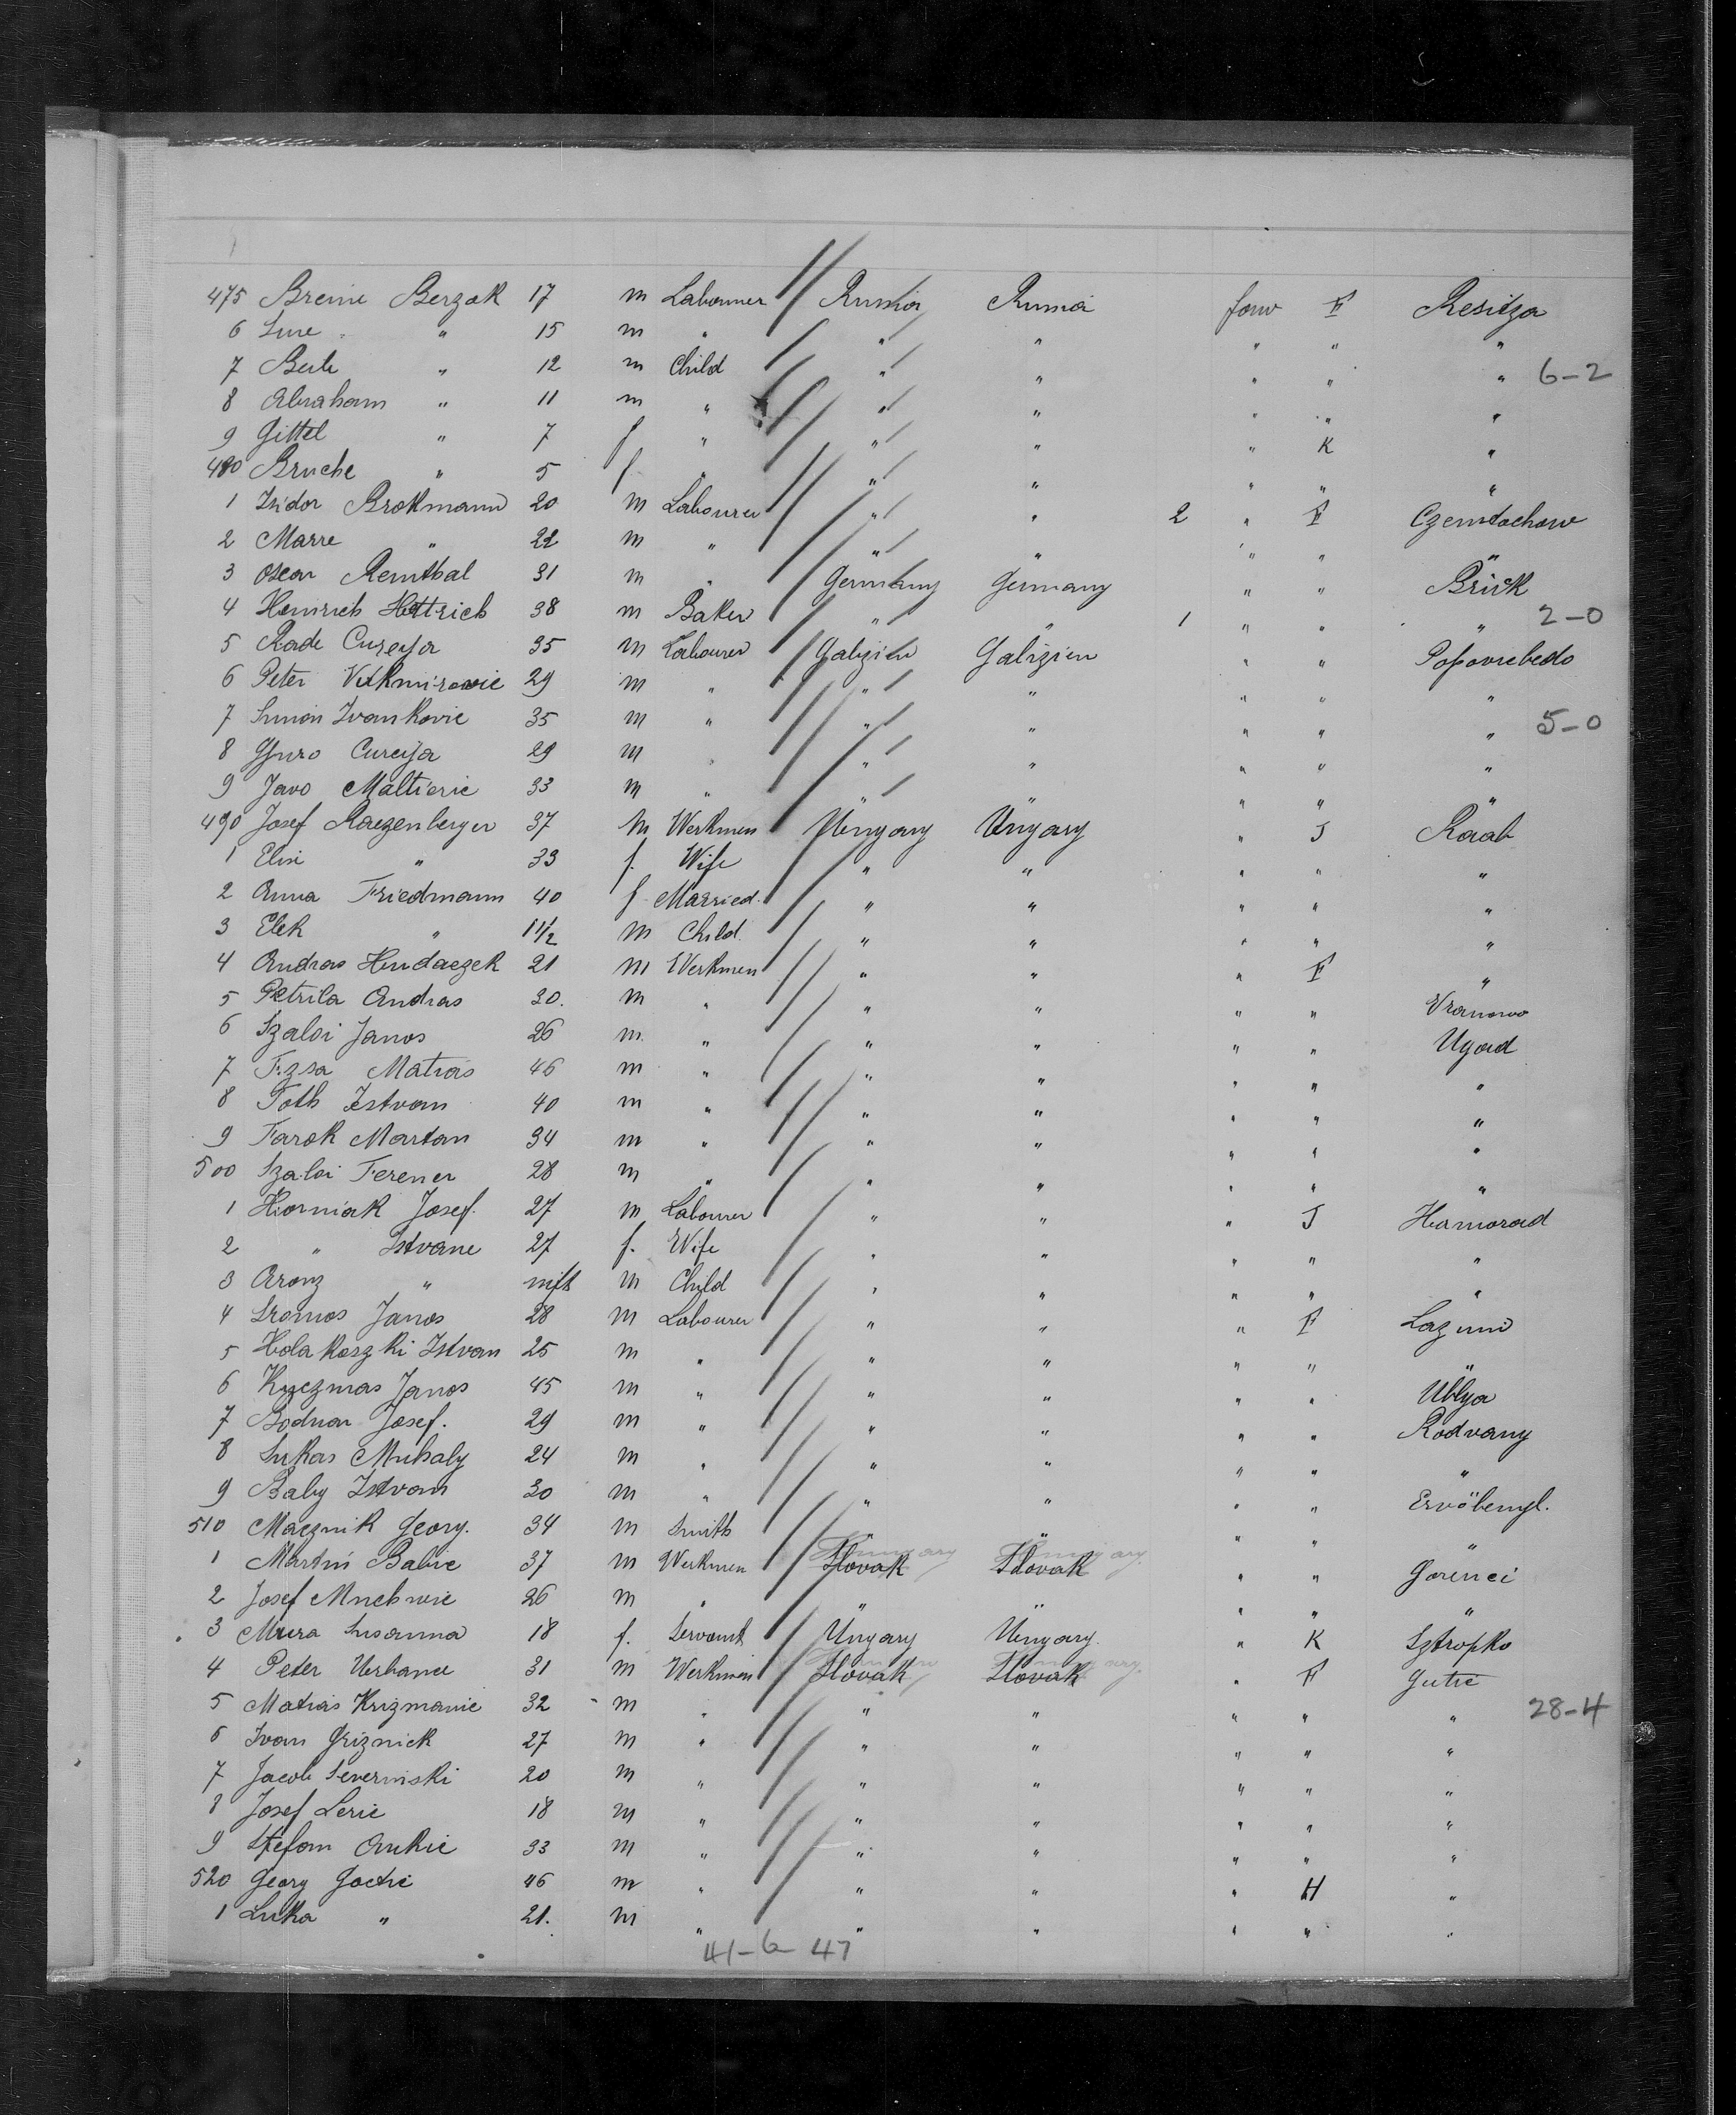 475 Breine Berzak 17 m Labourer Russia Russia forw F Resitza
6 Sure " 15 m " " " " " "
7 Berle " 12 m Child " " " " " 6-2
8 Abraham " 11 m " " " " " "
9 Gittel " 7 f " " " " K "
480 Bruche " 5 f " " " " " "
1 Isidor Brokmann 20 m Labourer " " 2 " F Czenstochow
2 Marre " 22 m " " " " " "
3 Oscar Remthal 31 m " Germany Germany " " Brück
4 Heinrich Hettrich 38 m Baker " " 1 " " " 2-0
5 Rade Curcija 35 m Labourer Galizien Galizien " " Popovicbedo
6 Peter Vukmirovic 29 m " " " " " "
7 Simon Ivankovic 35 m " " " " " " 5-0
8 Gjuro Curcija 29 m " " " " " "
9 Javo Maltieric 33 m " " " " " "
490 Josef Raczenberger 37 m Werkmen Ungary Ungary " J Raab
1 Elise " 33 f. Wife " " " " "
2 Anna Friedmann 40 f Married. " " " " "
3 Elek " 11/2 m Child. " " " " "
4 Andras Hudaczek 21 m Werkmen " " " F "
5 Petrila Andras 30. m " " " " " Vranowo
6 Szaloi Janos 26 m. " " " " " Ugod
7 Ezsa Matias 46 m " " " " " "
8 Toth Istvan 40 m " " " " " "
9 Farok Martan 34 m " " " " " "
500 Szaloi Ferencz 28 m " " " " " "
1 Horniak Josef. 27 m Labourer " " " J Hamorad
2 " Istvane 27 f. Wife " " " " "
3 Aronz " inft m Child " " " " "
4 Sromos Janos 28 m Labourer " " " F Lazuni
5 Holakoszki Istvan 25 m " " " " " "
6 Kuczmas Janos 45 m " " " " " Ublya
7 Bodnar Josef. 29 m " " " " " Rodvany
8 Lukas Muhaly 24 m " " " " " "
9 Baby Istvan 30 m " " " " " Ervöbenyl.
510 Macznik Georg. 34 m Smith " " " " "
1 Martin Babic 37 m Werkmen Slovak Slovak " " Gorenci
2 Josef Muchvic 26 m " " " " " "
3 Mura Susanna 18 f. Servant Ungary Ungary. " K Sztropko
4 Peter Urbanec 31 m Werkmen Slovak Slovak " F Gutic
5 Matias Krizmanic 32 m " " " " " " 28-4
6 Ivan Griznick 27 m " " " " " "
7 Jacob Severinski 20 m " " " " " "
8 Josef Leric 18 m " " " " " "
9 Stefan Ankic 33 m " " " " " "
520 Georg Goctic 46 m " " " " H "
1 Luka " 21. m " " " " " "
41-6 47